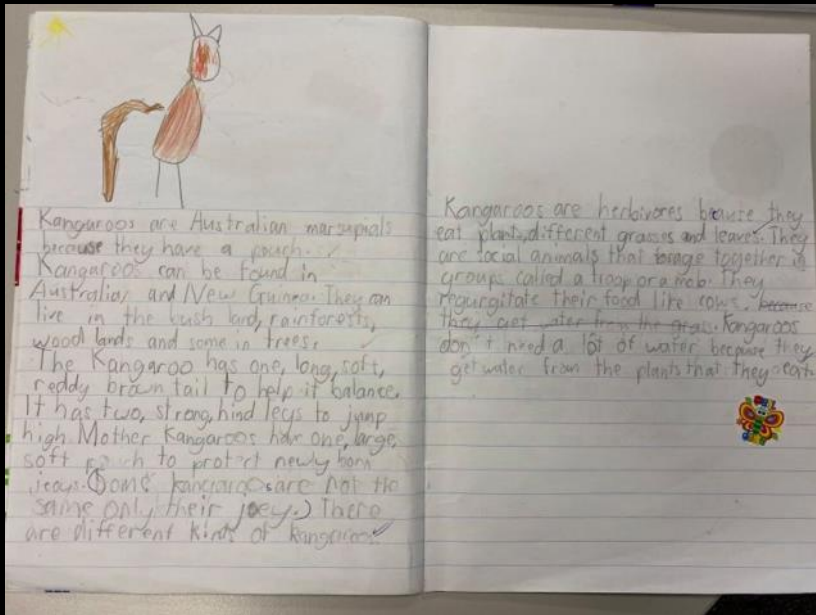 Kangaroos are Australian marsupials
because they have a pouch.
Kangaroos can be found in
Australia, and New Guinea. They can
live in the bush land, rainforests,
wood lands and some in trees.
The Kangaroo has one, long, soft,
reddy brown tail to help it balance.
It has two, strong, hind legs to jump
high Mother Kangaroos have one, large,
soft pouch to protect newly born
joeys. (Some kangaroos are not the
same only their joey.) There
are different kinds of kangaroos.
Kangaroos are herbivores because they
eat plants, different grasses and leaves. They
are social animals that forage together in
groups called a troop or a mob. They
regurgitate their food like cows. because
they get water from the gras. Kangaroos
don't need a lot of water because they
get water from the plants that they eat.